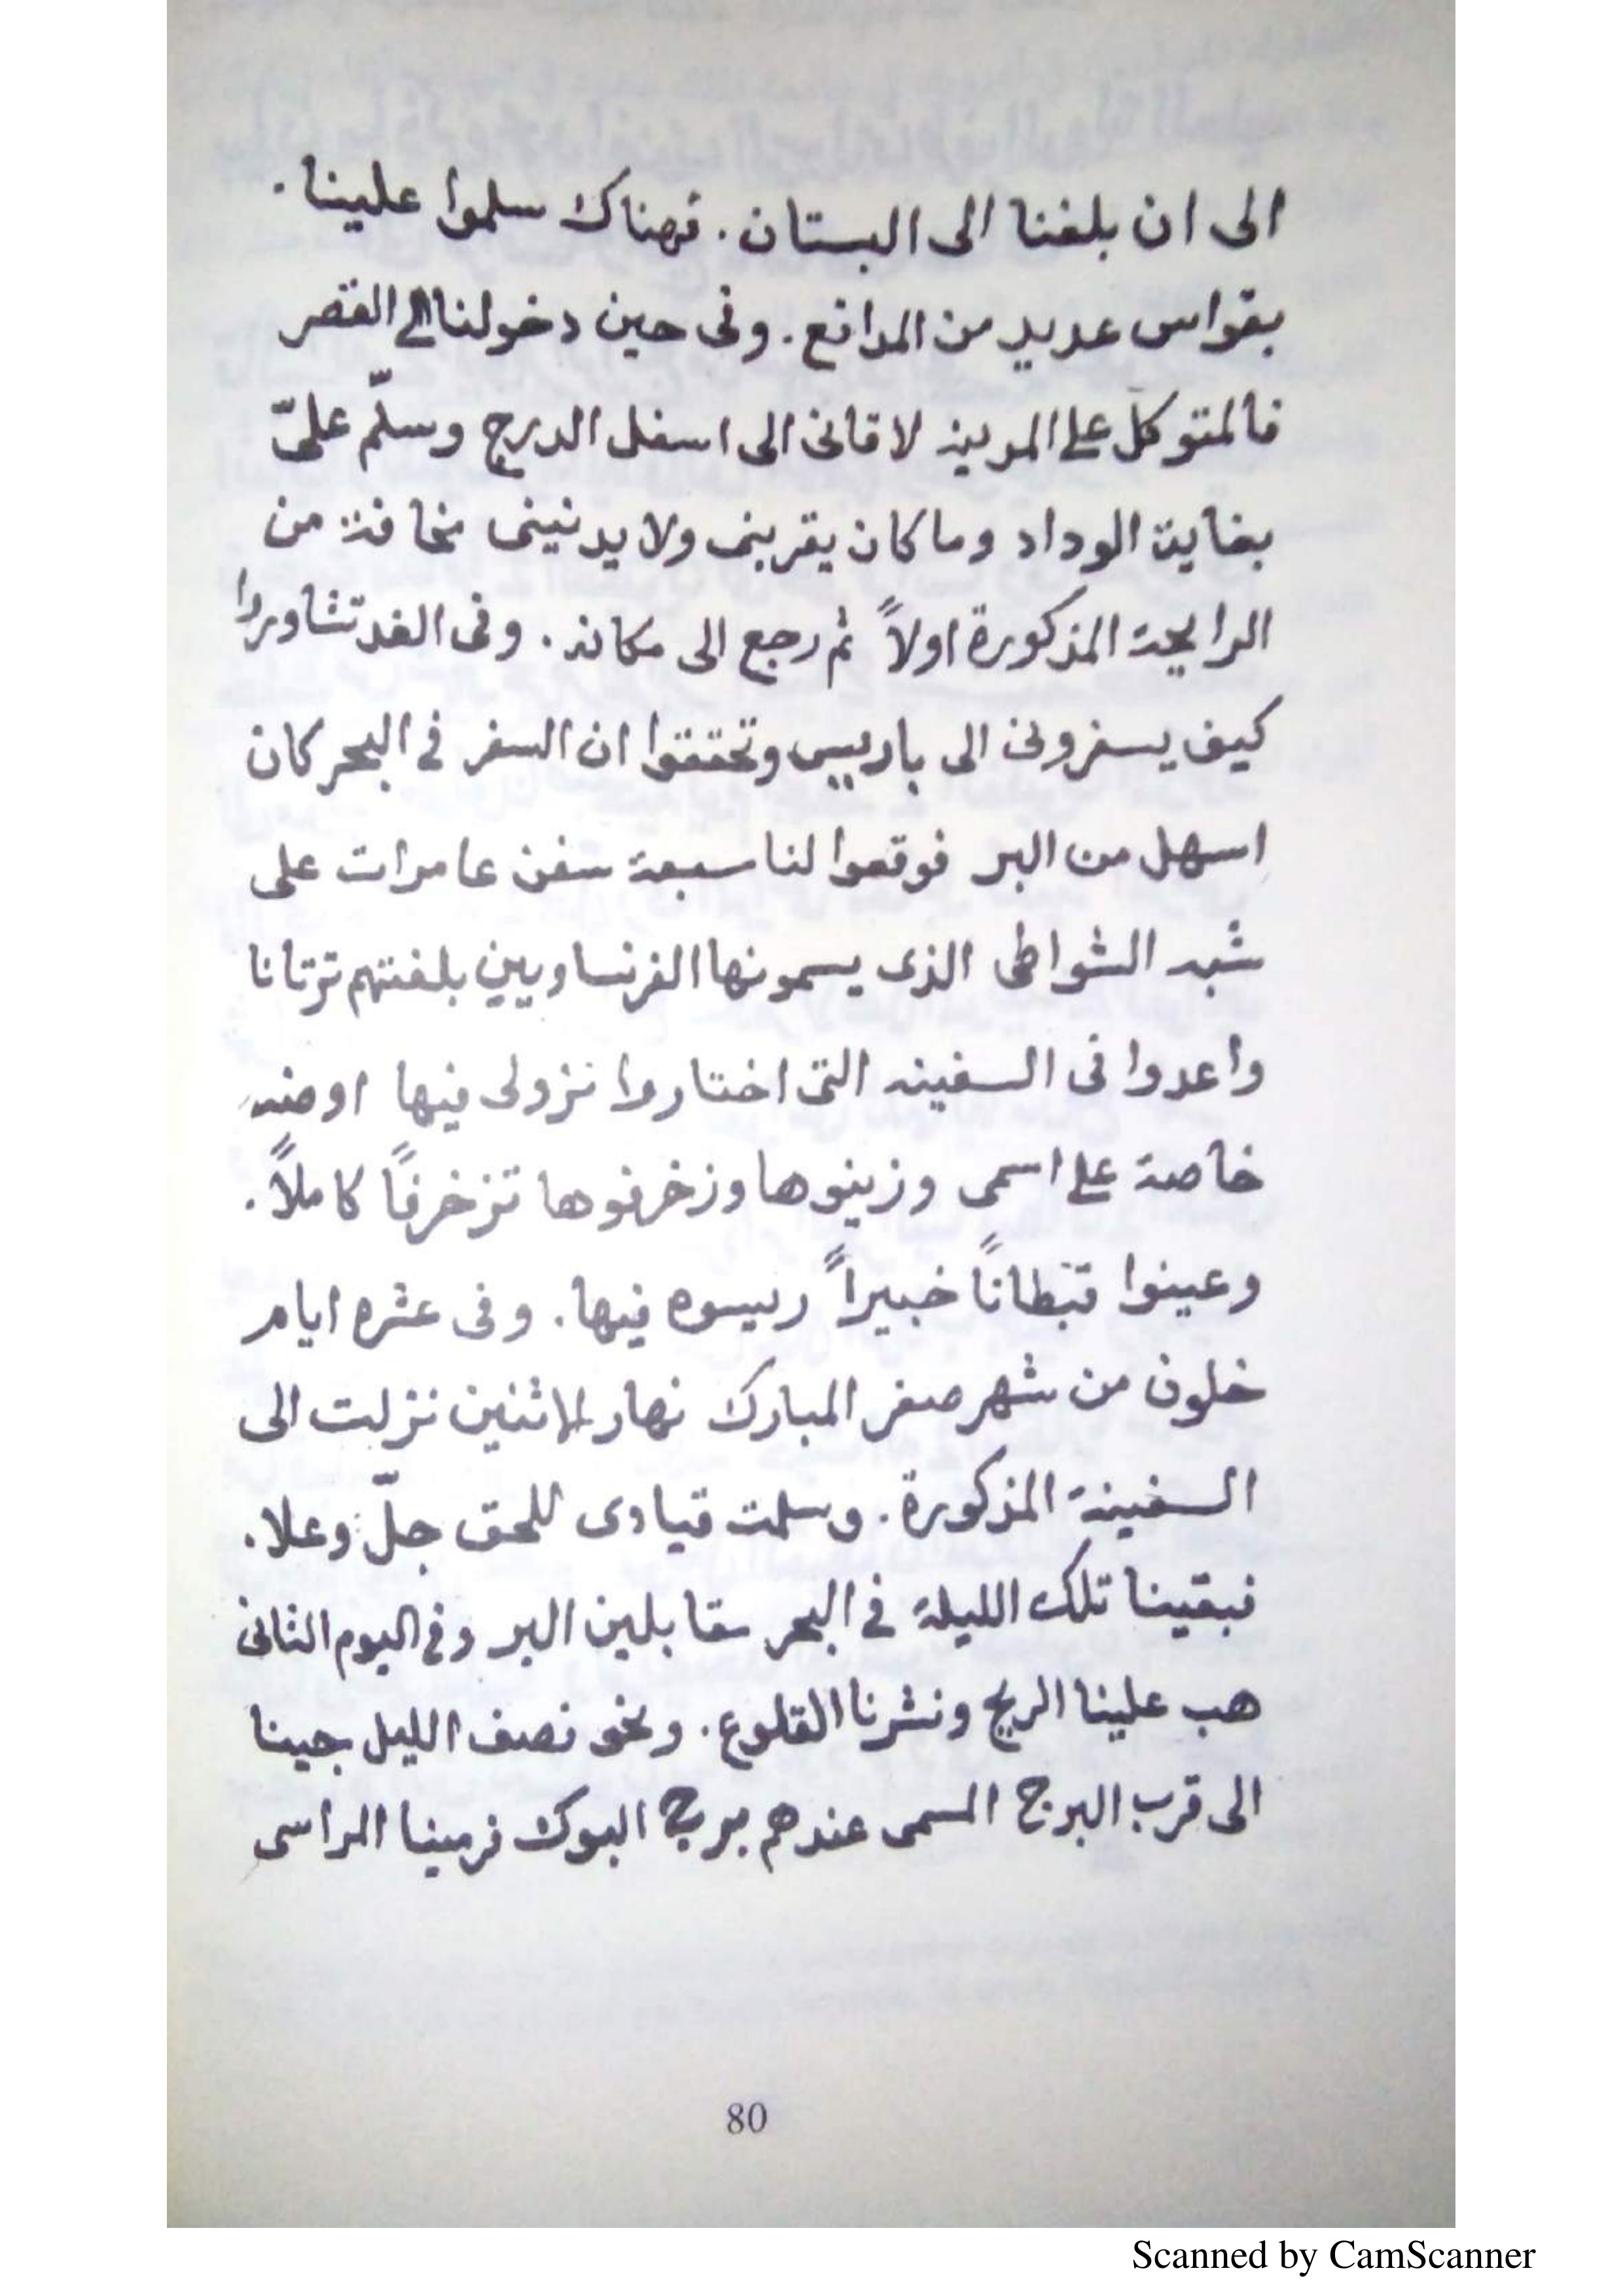 الى ان بلغنا الى البستان. فهناك سلموا علينا.
بقواس عديد من المدافع. وفى حين دخولنا الى القصر
فالمتوكل على المدينه لاقانى الى اسفل الدرج وسلّم علىّ
بغاية الوداد وما كان يقربنى ولا يدنينى مخافة من
الرايحة المذكورة اولاً ثم رجع الى مكانه. وفى الغد تشاوروا
كيف يسفرونى الى باريس وتحققوا ان السفر فى البحر كان
اسهل من البر فوقعوا لنا سبعة سفن عامرات على
شبه الشواطى الذى يسمونها الفرنساويين بلغتهم ترتانا
واعدوا فى السفينه التى اختاروا نزولى فيها اوضه
خاصة على اسمى وزينوها وزخرفوها تزخرفًا كاملاً.
وعينوا قبطانًا خبيراً ريسوه فيها. وفى عشره ايام
خلون من شهر صفر المبارك نهار الاثنين نزلت الى
السفينة المذكورة. وسلمت قيادى للحق جلّ وعلا.
فبقينا تلك الليلة فى البحر مقابلين البر وفى اليوم الثانى
هب علينا الريح ونشرنا القلوع. ونحو نصف الليل جينا
الى قرب البرج المسمى عندهم برج البوك فرمينا المراسى
80
Scanned by CamScanner